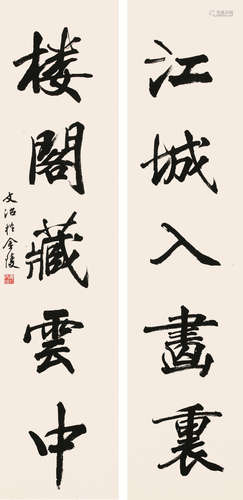 江城入畵裏
楼閣藏雲中
文治於金陵